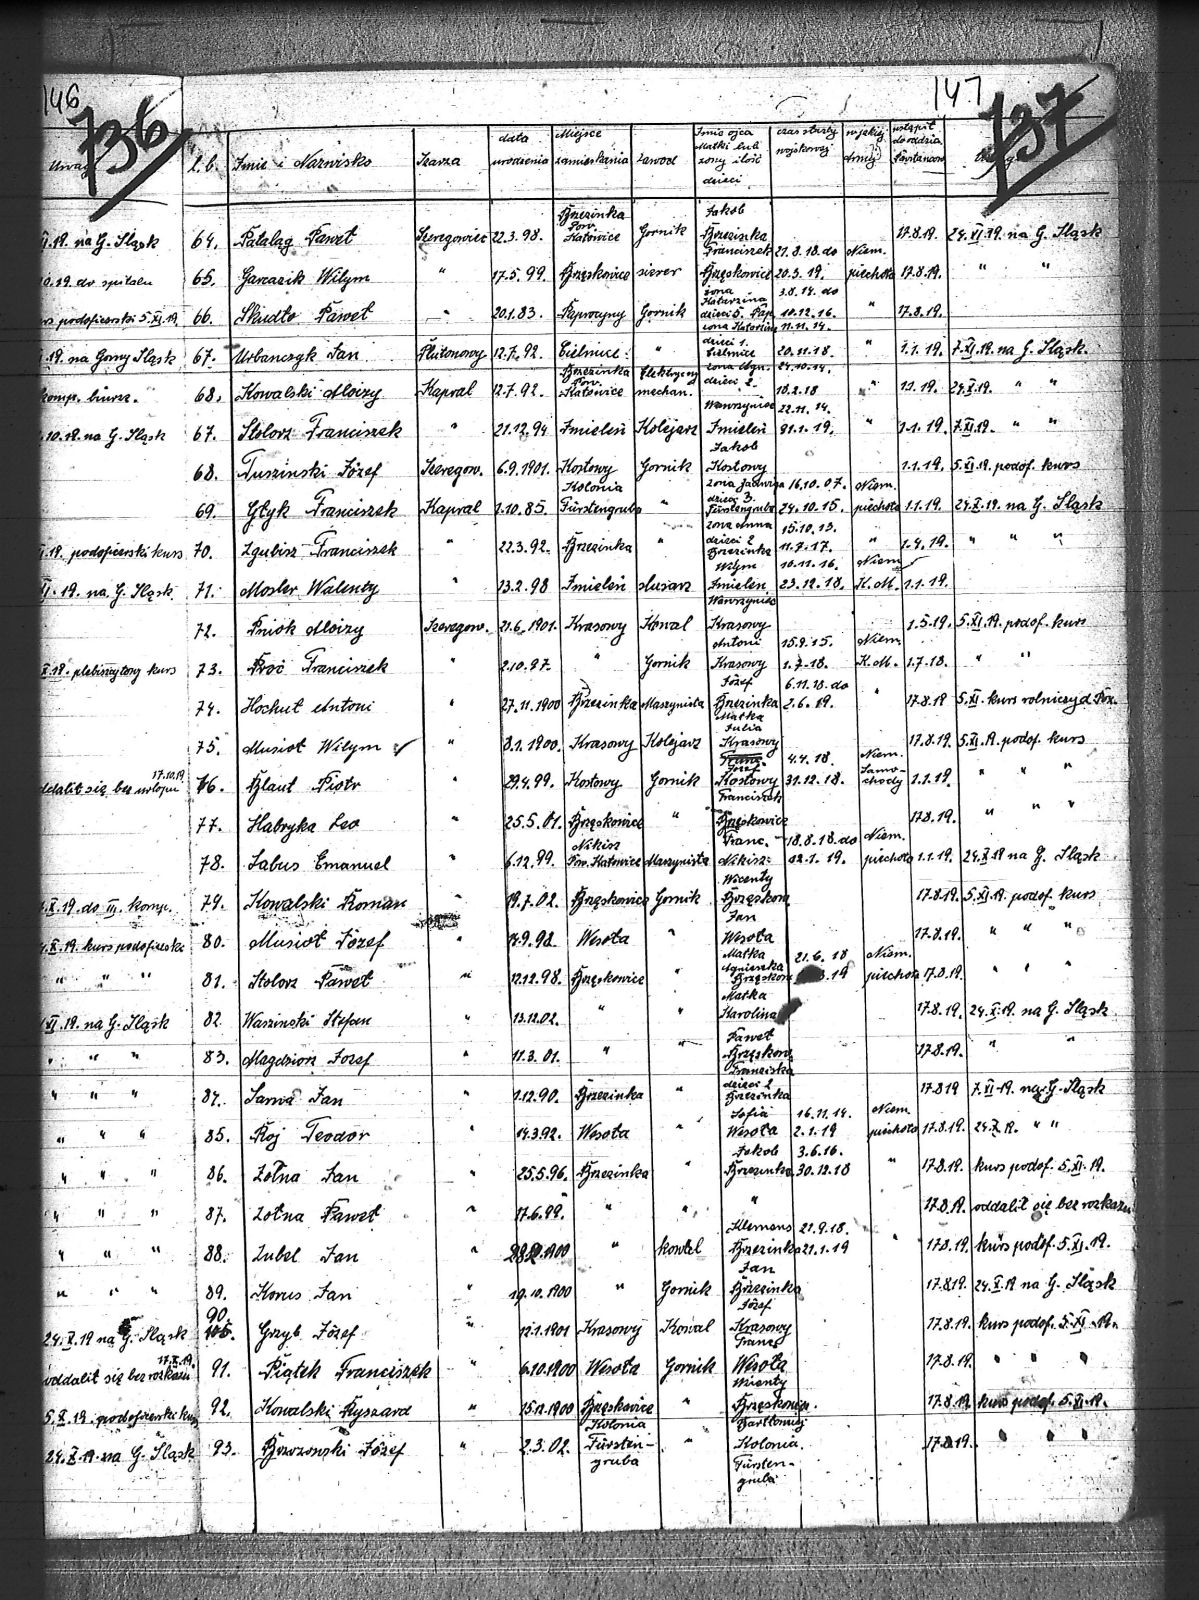 146
736
147
737
L.b. Imie i Nazwisko Szarza data urodzenia Miejsce zamieszkania zawod Imie ojca Matki lub zony ilość dzieci czas służby wojskowej w jakiej Armji wstąpił do oddzia. Powstancow
64. Palalag Paweł Szeregowiec 22.3.98. Brzezinka Pow. Katowice Gornik Jakob Brzezinka 17.8.19. 24.VI.19. na G. Sląsk
65. Garcazik Wilym " 17.5.99. Brzęskowice siever Franciszek Brzęskowice 21.8.18. do 20.3.19. Niem. piechota 17.8.19. " "
66. Skudło Paweł " 20.1.83. Paprocyny Gornik żona Katarzina dzieci 5. Pap. 3.8.14. do 10.12.16. " 17.8.19.
67. Urbanczyk Jan Plutonowy 12.7.92. Cielmice " żona Katarina dzieci 1. Cielmice 11.11.14. 20.11.18. " 1.1.19. 7.XI.19. na G. Sląsk.
68. Kowalski Aloizy Kapral 12.7.92. Brzezinka Pow. Katowice Elektryczny mechan. zona Agn. dzieci 2. 24.10.14. 10.2.18 " 1.1.19. 24.X.19. " "
67. Stolorz Franciszek " 21.12.94 Imieleń Kolejarz Wawrzyniec Imieleń 22.11.14. 31.1.19. " 1.1.19. 7.XI.19. " "
68. Tuszinski Józef Szeregow. 6.9.1901. Kostowy Gornik Jakob Kostowy 1.1.19. 5.XI.19. podof. kurs
69. Głyk Franciszek Kapral 1.10.85. Kolonia Fürstengrube " żona Jadwiga dzieci 3. Fürstengrube 16.10.07. 24.10.15. Niem. piechota 1.1.19. 24.X.19. na G. Sląsk
70. Zgubisz Franciszek " 22.3.92. Brzezinka " zona Anna dzieci 2 Brzezinka 15.10.13. 11.7.17. " 1.4.19. " " "
71. Mosler Walenty " 13.2.98 Imieleń slusarz Wilym Imieleń 10.11.16. 23.12.18. Niem K.M. 1.1.19.
72. Pniok Aloizy Szeregow. 21.6.1901. Krasowy Kowal Wawrzyniec Krasowy 1.5.19. 5.XI.19. podof. kurs
73. Proć Franciszek " 2.10.97. " Gornik Antoni Krasowy 15.9.15. 1.7.18. Niem K.M. 1.7.18. " "
74. Hochut Antoni " 27.11.1900 Brzezinka Maszynista Józef Brzezinka 6.11.18. do 2.6.19. " 17.8.19 5.XI. kurs rolniczy
75. Musiot Wilym " 8.1.1900. Krasowy Kolejarz Matka Julia Krasowy 17.8.19. 5.XI.19. podof. kurs
76. Blaut Piotr " 29.4.99. Kostowy Gornik Józef Kostowy 4.4.18. 31.12.18. Niem. Samochody 1.1.19. " " "
77. Habryka Leo " 25.5.01. Brzęskowice " Franciszek Brzęskowice 17.8.19. " " "
78. Jabus Emanuel " 6.12.99. Nikisz Pow. Katowice Maszynista Franc. Nikisz 18.8.18. do 12.1.19. Niem. piechota 1.1.19. 24.X.19 na G. Sląsk
79. Kowalski Roman " 19.7.02. Brzęskowice Gornik Wicenty Brzęskow 17.8.19. 5.XI.19. podof kurs
80. Musiot Józef " 14.9.98. Wesoła " Jan Wesoła 17.8.19. " " "
81. Stolorz Paweł " 12.12.98. Brzęskowice " Matka Agnieszka Brzęskow 21.6.18 .19 Niem. piechota 17.8.19. " " "
82 Waszinski Stefan 13.12.02. " " Matka Karolina 17.8.19. 24.X.19. na G. Sląsk
83. Magdzioń Jozef " 11.3.01. " " Paweł Brzęskow 17.8.19. " "
84. Sarna Jan " 1.12.90. Brzezinka " Franciska dzieci 2 Brzezinka 17.8.19 7.VI.19. na G. Sląsk
85. Roj Teodor " 14.3.92. Wesoła " Sofia Wesoła 16.11.14. 2.1.19 Niem. piechota 17.8.19. 24.X.19. " "
86. Zołna Jan " 25.5.96. Brzezinka " Jakob Brzezinka 3.6.16. 30.12.18 " 17.8.19. kurs podof. 5.XI.19.
87. Zołna Paweł " 17.6.99. " " " 17.8.19. oddalił się bez rozkazu
88. Zubel Jan " 1900 " kowal Klemens Brzezinka 21.9.18. 21.1.19 " 17.8.19. kurs podof. 5.XI.19.
89. Korus Jan " 19.10.1900 " Gornik Jan Brzezinka 17.8.19. 24.X.19 na G. Sląsk
90. Grzyb Józef " 12.1.1901 Krasowy Kowal Józef Krasowy 17.8.19. kurs podof. 5.XI.19.
91. Piątek Franciszek " 6.10.1900 Wesoła Gornik Franc. Wesoła 17.8.19. " " "
92. Kowalski Ryszard " 15.12.1900 Brzęskowice " Brzęskowice. 17.8.19. kurs podof. 5.XI.19.
93. Brzozowski Józef " 2.3.02. Kolonia Fürsten-gruba " Bartłomiej Kolonia Fürsten-gruba 17.8.19. " " "
na G. Sląsk
10.19. do spitalu
podoficerski 5.XI.19.
19. na Gorny Sląsk
komp. biurze.
10.19. na G. Sląsk
19. podoficerski kurs
19. na G. Sląsk
X.19. plebiszytowy kurs
17.10.19
oddalił się bez urlopu
X.19 do III. komp.
X.19. kurs podoficerski
" " "
VI.19. na G. Sląsk
" " "
" " "
" " "
" " "
" " "
" " "
" " "
24.X.19 na G. Sląsk
17.X.19.
oddalił się bez rozkazu
5.X.19. podoficerski kurs
24.X.19. na G. Sląsk